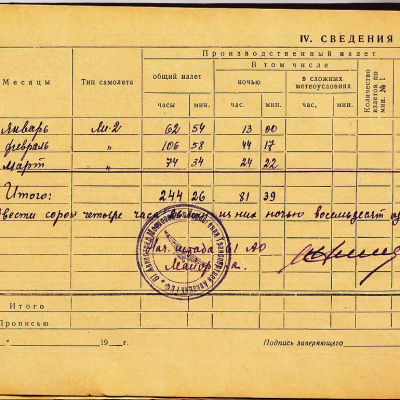 IV. СВЕДЕНИЯ
Производственный налет
Месяцы Тип самолета общий налет В том числе Количество взлетов по мин. № 1
ночью в сложных метеоусловиях
часы мин. час. мин. час. мин.
Январь Ли-2 62 54 13 00
февраль " 106 58 44 17
Март " 74 34 24 22
Итого: 244 26 81 39
Двести сорок четыре часа из них ночью восемьдесят
Нач. штаба 61 АО
Майор
Итого
Прописью
" " 19 г. Подпись заверяющего